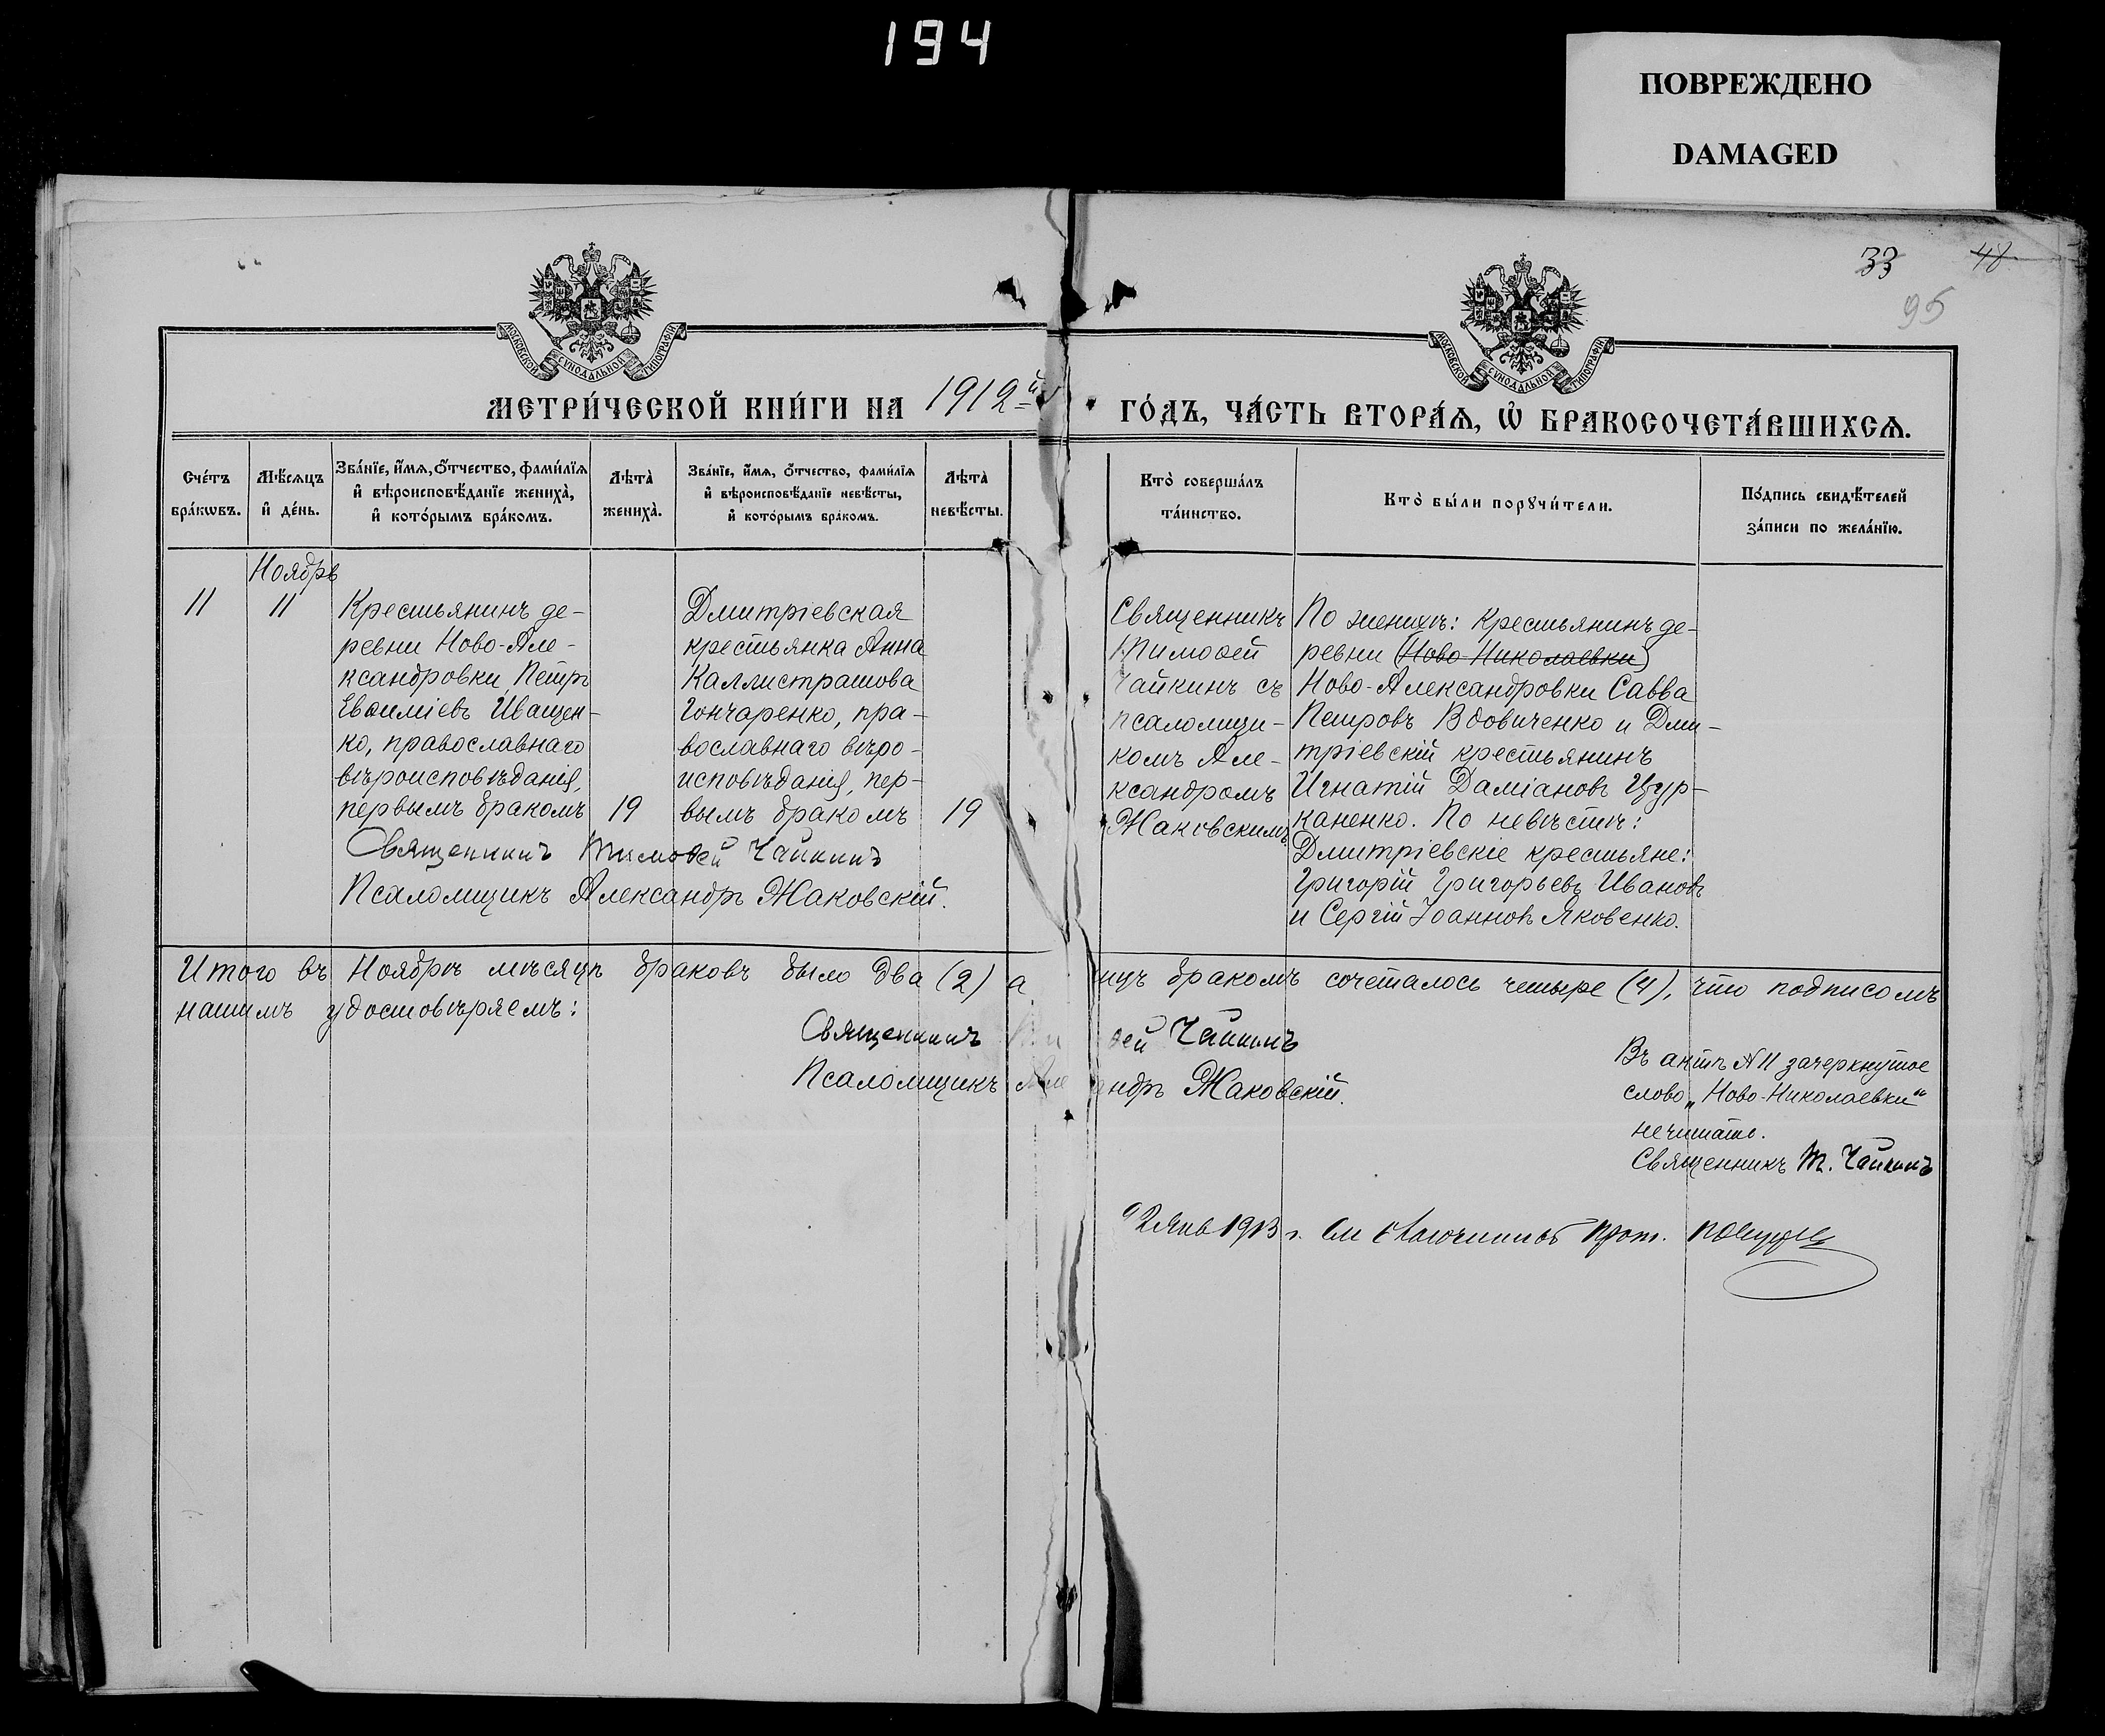 194
ПОВРЕЖДЕНО
DAMAGED
33 48
95
МОСКОВСКОЙ СѴНОДАЛЬНОЙ ТИПОГРАФІИ
МОСКОВСКОЙ СѴНОДАЛЬНОЙ ТИПОГРАФІИ
МЕТРИ́ЧЕСКОЙ КНИ́ГИ НА 1912й ГО́ДЪ, ЧА́СТЬ ВТОРА́Ѧ, Ѡ҆ БРАКОСОЧЕТА́ВШИХСѦ.
Сче́тъ
бра́кѡвъ.
Мѣ́сѧцъ
и҆ де́нь.
Зва́нїе, и҆́мѧ, о҆́тчество, фами́лїѧ
и҆ вѣроисповѣ́данїе жениха̀,
и҆ кото́рымъ бра́комъ.
Лѣта̀
жениха̀.
Зва́нїе, и҆́мѧ, о҆́тчество, фами́лїѧ
и҆ вѣроисповѣ́данїе невѣ́сты,
и҆ кото́рымъ бра́комъ.
Лѣта̀
невѣ́сты.
Кто̀ соверша́лъ
та́инство.
Кто̀ бы́ли порꙋчи́тели.
По́дпись свидѣ́телей
за́писи по жела́нїю.
Ноябрь
11
11
Крестьянинъ де-
ревни Ново-Але-
ксандровки Петръ
Евѳиміевъ Иващен-
ко, православнаго
вѣроисповѣданія,
первымъ бракомъ
19
Дмитріевская
крестьянка Анна
Каллистратова
Гончаренко, пра-
вославнаго вѣро-
исповѣданія, пер-
вымъ бракомъ
19
Священникъ Тимоѳей Чайкинъ
Псаломщикъ Александръ Жаковскій.
Священникъ
Тимоѳей
Чайкинъ съ
псаломщи-
комъ Але-
ксандромъ
Жаковскимъ
По женихѣ: крестьянинъ де-
ревни (Ново-Николаевки)
Ново-Александровки Савва
Петровъ Вдовиченко и Дми-
тріевскій крестьянинъ
Игнатій Даміановъ Цур-
каненко. По невѣстѣ:
Дмитріевскіе крестьяне:
Григорій Григорьевъ Ивановъ
и Сергій Іоанновъ Яковенко.
Итого въ Ноябрѣ мѣсяцѣ браковъ было два (2) а ицъ бракомъ сочеталось четыре (4), что подписомъ
нашимъ удостовѣряемъ:
Священникъ Ти ѳей Чайкинъ
Псаломщикъ Але андръ Жаковскій.
Въ актѣ №11 зачеркнутое
слово „Ново-Николаевки“
нечитать.
Священникъ Т. Чайкинъ
1913 г.